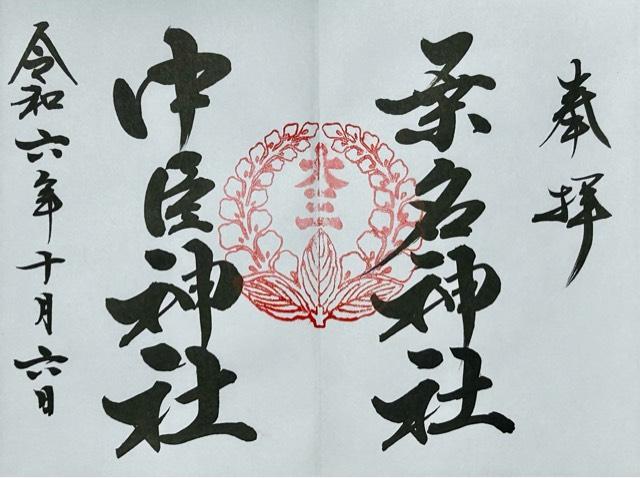 奉拝
桑名神社
大三
中臣神社
令和六年十月六日